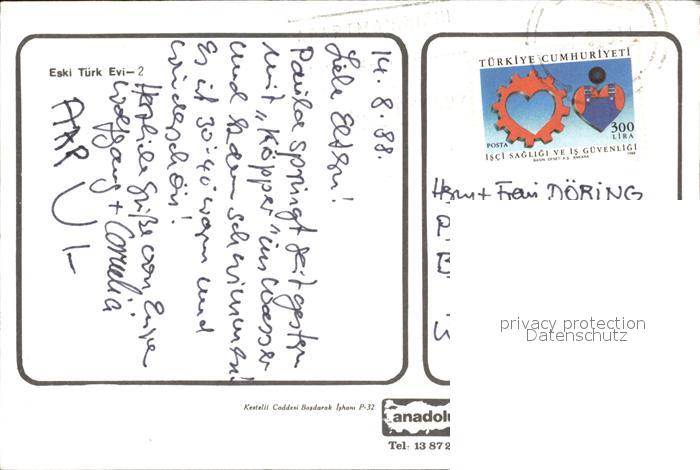 Eski Türk Evi—2
14.8.88.
Liebe Eltern!
Paula springt seit gestern
mit „Köpper" ins Wasser
und kann schwimmen!
Es ist 30-40 warm und
wunderschön!
Herzliche Grüße von Eurer
Wolfgang + Cornelia
TÜRKİYE CUMHURİYETİ
300
LİRA
POSTA
İŞÇİ SAĞLIĞI VE İŞ GÜVENLİĞİ
BASIM OFSET A.Ş. ANKARA 1988
Herrn + Frau DÖRING
privacy protection
Datenschutz
Kestelli Caddesi Başdarak İşhanı P-32
anadolu
Tel: 13 87 2